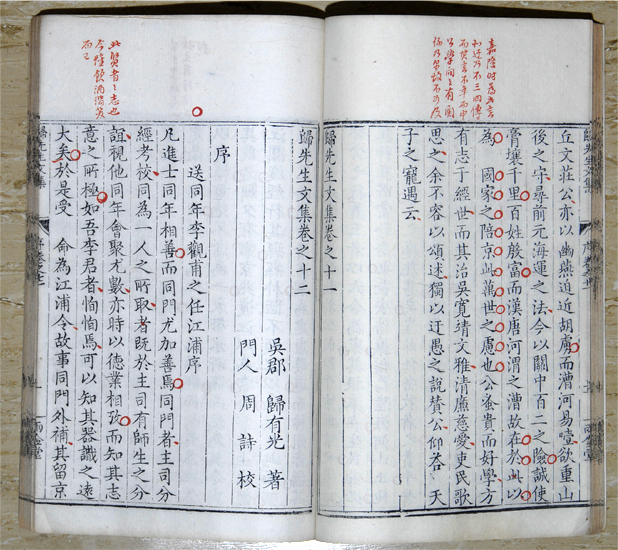 嘉隆時為此言
不三四傳
而其言不幸而中
學問之有關
丘文莊公亦以幽燕道近胡虜而漕河易噎欲重山
後之守尋前元海運之法今以關中百二之險誠使
膏壤千里百姓殷富而漢唐河渭之漕故在於此以
為 國家之陪京此萬世之慮也公蚤貴而好學方
有志于經世而其治吳寬靖文雅清廉慈愛吏民歌
思之余不容以頌述獨以迂愚之說贊公仰荅 天
子之寵遇云
歸先生文集卷之十一
此賢者之志也
今惟飲酒
而已
歸先生文集卷之十二
吳郡 歸有光 著
門人 周詩 校
序
送同年李觀甫之任江浦序
凡進士同年相善而同門尤加善焉同門者主司分
經考校同為一人之所取者既於主司有師生之分
誼視他同年會聚尤數亦時以德業相攷而知其志
意之所極如吾李君者恂恂焉可以知其器識之遠
大矣於是受 命為江浦令故事同門外補其留京